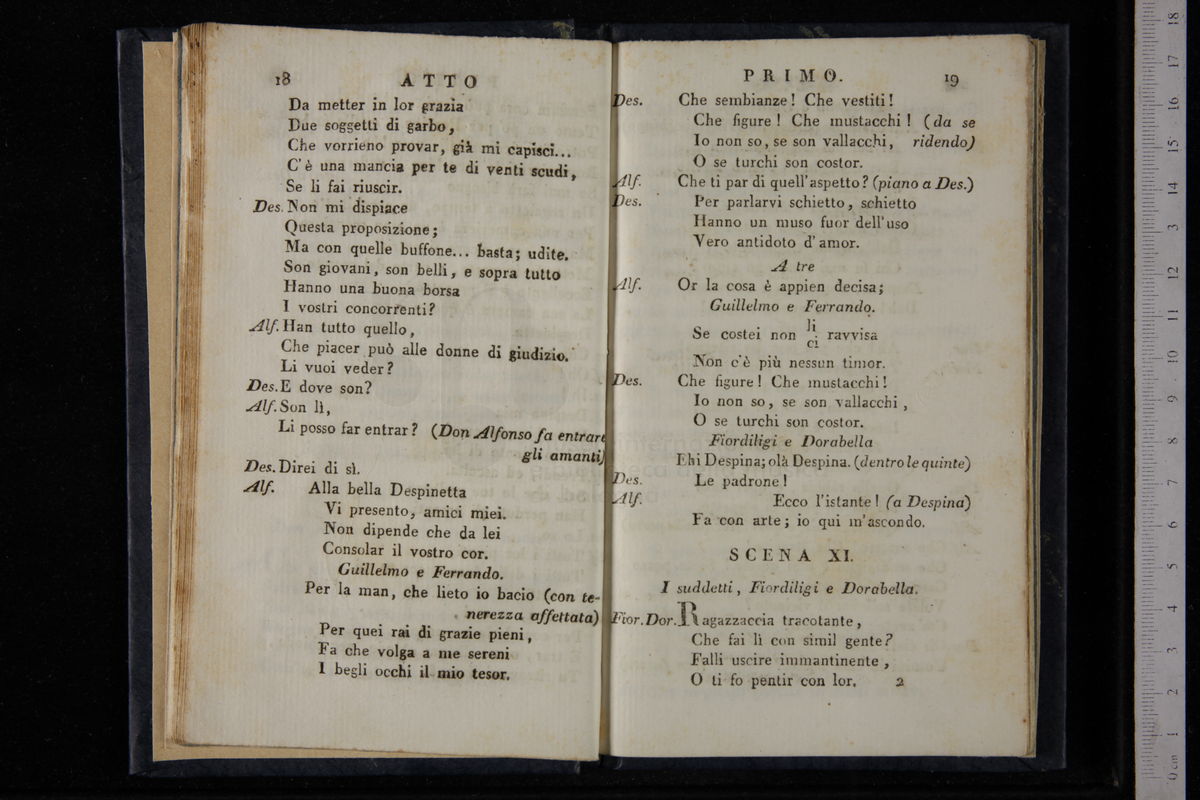 18 ATTO
Da metter in lor grazia
Due soggetti di garbo,
Che vorrieno provar, già mi capisci...
C'è una mancia per te di venti scudi,
Se li fai riuscir.
Des. Non mi dispiace
Questa proposizione;
Ma con quelle buffone... basta; udite.
Son giovani, son belli, e sopra tutto
Hanno una buona borsa
I vostri concorrenti?
Alf. Han tutto quello,
Che piacer può alle donne di giudizio.
Li vuoi veder?
Des. E dove son?
Alf. Son lì,
Li posso far entrar? (Don Alfonso fa entrare
gli amanti)
Des. Direi di sì.
Alf. Alla bella Despinetta
Vi presento, amici miei.
Non dipende che da lei
Consolar il vostro cor.
Guillelmo e Ferrando.
Per la man, che lieto io bacio (con te-
nerezza affettata)
Per quei rai di grazie pieni,
Fa che volga a me sereni
I begli occhi il mio tesor.
PRIMO. 19
Des. Che sembianze! Che vestiti!
Che figure! Che mustacchi! (da se
Io non so, se son vallacchi, ridendo)
O se turchi son costor.
Alf. Che ti par di quell'aspetto? (piano a Des.)
Des. Per parlarvi schietto, schietto
Hanno un muso fuor dell'uso
Vero antidoto d'amor.
A tre
Alf. Or la cosa è appien decisa;
Guillelmo e Ferrando.
Se costei non li ravvisa
ci
Non c'è più nessun timor.
Des. Che figure! Che mustacchi!
Io non so, se son vallacchi,
O se turchi son costor.
Fiordiligi e Dorabella
Ehi Despina; olà Despina. (dentro le quinte)
Des. Le padrone!
Alf. Ecco l'istante! (a Despina)
Fa con arte; io qui m'ascondo.
SCENA XI.
I suddetti, Fiordiligi e Dorabella.
Fior. Dor. Ragazzaccia tracotante,
Che fai lì con simil gente?
Falli uscire immantinente,
O ti fo pentir con lor. 2
0 cm 1 2 3 4 5 6 7 8 9 10 11 12 13 14 15 16 17 18